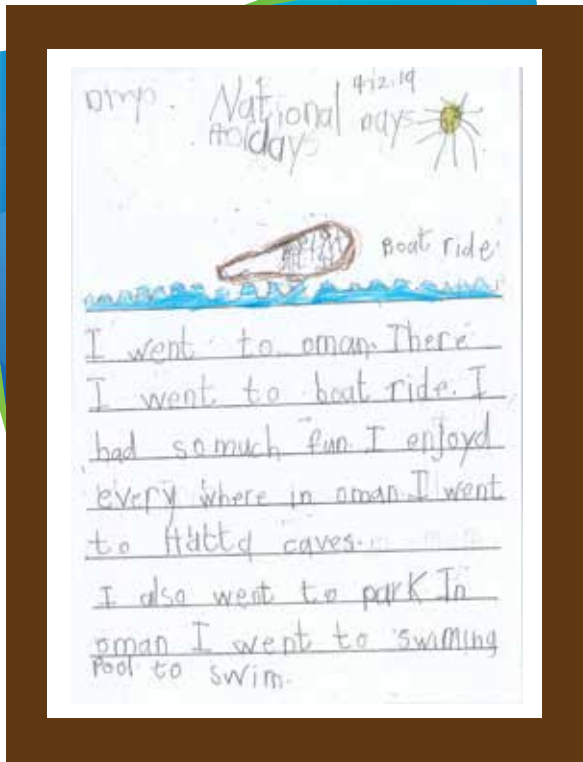 4.12.19
National Days
Holdays
Boat ride
I went to oman. There
I went to boat ride. I
had somuch fun. I enjoyd
every where in oman. I went
to Hatta caves.
I also went to park In
oman I went to swiming
Pool to swim.